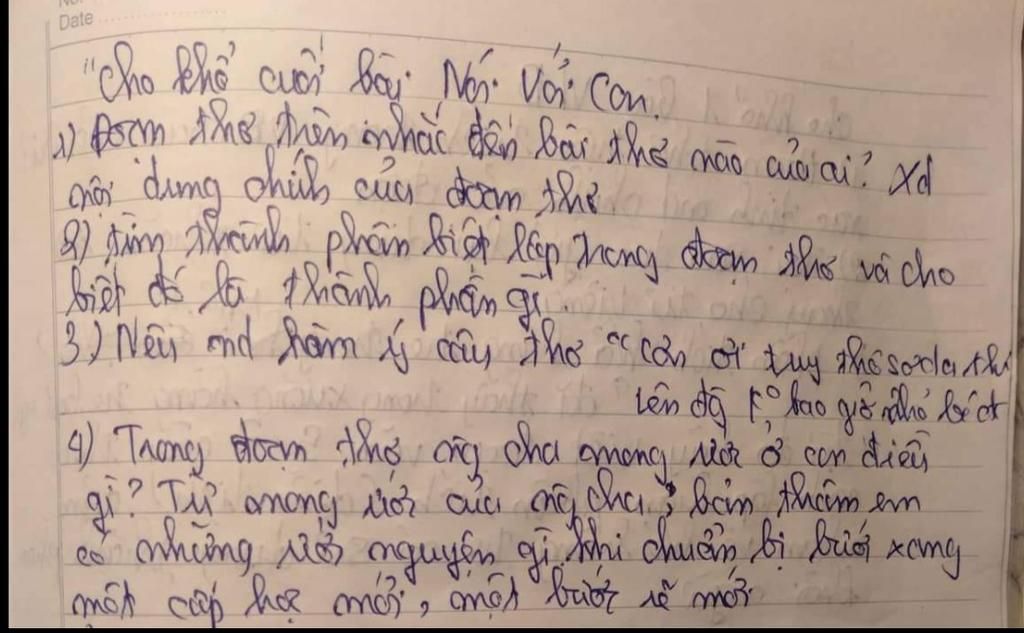 No.
Date
"Cho khổ cuối bài Nói Với Con.
1) Đoạn thơ trên nhắc đến bài thơ nào của ai? Xđ
nội dung chính của đoạn thơ
2) tìm thành phần biệt lập trong đoạn thơ và cho
biết đó là thành phần gì.
3.) Nêu nd hàm ý câu thơ "con ơi tuy thô sơ da thịt
lên đg k° bao giờ nhỏ bé đc
4) Trong đoạn thơ ng cha mong ước ở con điều
gì? Từ mong ước của ng cha, bản thân em
có những ước nguyện gì khi chuẩn bị bước xang
một cấp học mới, một bước rẽ mới